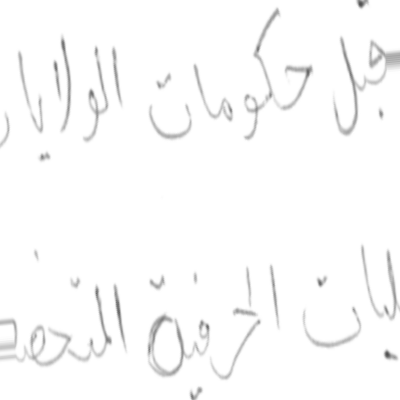 قبل حكومات الولايات
ليات الحرفية المتخصـ